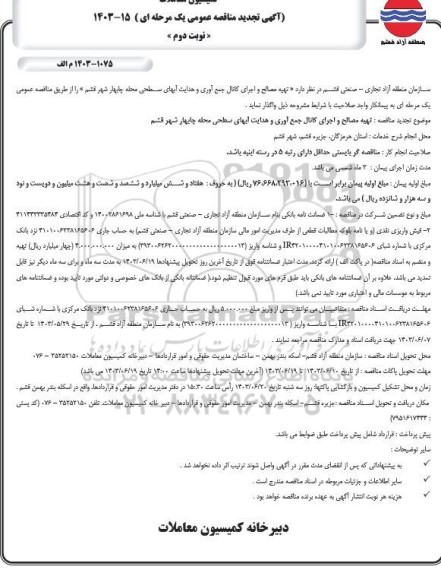 کمیسیون معاملات
(آگهی تجدید مناقصه عمومی یک مرحله ای ) ۱۵-۱۴۰۳
« نوبت دوم »
منطقه آزاد قشم
۱۰۷۵-۱۴۰۳ م الف
سازمان منطقه آزاد تجاری – صنعتی قشم در نظر دارد « تهیه مصالح و اجرای کانال جمع آوری و هدایت آبهای سطحی محله چابهار شهر قشم » را از طریق مناقصه عمومی
یک مرحله ای به پیمانکار واجد صلاحیت با شرایط مشروحه ذیل واگذار نماید .
موضوع تجدید مناقصه : تهیه مصالح و اجرای کانال جمع آوری و هدایت آبهای سطحی محله چابهار شهر قشم
محل انجام شرح خدمات : استان هرمزگان، جزیره قشم، شهر قشم
صلاحیت انجام کار : مناقصه گر بایستی حداقل دارای رتبه ۵ در رسته ابنیه باشد.
مدت زمان اجرای پیمان : ۳ ماه شمسی می باشد.
مبلغ اولیه پیمان : مبلغ اولیه پیمان برابر است با (۷۶،۶۶۸،۲۹۳،۰۱۶ ریال) ( به حروف : هفتاد و شش میلیارد و ششصد و شصت و هشت میلیون و دویست و نود
و سه هزار و شانزده ریال ) می باشد.
مبلغ و نوع تضمین شرکت در مناقصه : ۱- ضمانت نامه بانکی بنام سازمان منطقه آزاد تجاری – صنعتی قشم با شناسه ملی ۱۴۰۰۲۸۶۱۶۹۸ و کد اقتصادی ۴۱۱۳۳۲۳۳۵۳۸۳
۲- فیش واریزی نقدی (و یا نامه بلوکه مطالبات قطعی از طرف مدیریت امور مالی سازمان منطقه آزاد تجاری – صنعتی قشم) به حساب جاری ۴۱۰۱۰۰۶۲۳۸۱۶۵۶۰۶ نزد بانک
و منضم به اسناد مناقصه( در پاکت الف ) ارائه گردد، مدت اعتبار ضمانتنامه فوق از تاریخ آخرین روز تحویل پیشنهادها ۱۴۰۳/۰۶/۱۹ به مدت سه ماه و برای سه ماه دیگر نیز قابل
تمدید می باشد. علاوه بر آن ضمانتنامه های بانکی باید طبق فرم های مورد قبول تنظیم شود( ضمانتنامه بانکی از بانک های خصوصی و دولتی مورد تایید بوده و ضمانتنامه های
مربوط به موسسات مالی و اعتباری مورد تایید نمی باشد)
۱۴۰۳/۰۶/۰۷ جهت دریافت اسناد و مدارک مناقصه مراجعه نمایند .
محل تحویل اسناد مناقصه : سازمان منطقه آزاد قشم- اسکله بندر بهمن – ساختمان مدیریت حقوقی و امور قراردادها – دبیرخانه کمیسیون معاملات ۳۵۲۵۲۱۵۰ – ۰۷۶
مهلت تحویل پاکات مناقصه : از تاریخ ۱۴۰۳/۰۶/۱۰ تا تاریخ ۱۴۰۳/۰۶/۱۹ (آخرین مهلت تحویل پیشنهادها ساعت ۱۳:۰۰ تاریخ ۱۴۰۳/۰۶/۱۹ می باشد)
زمان و محل تشکیل کمیسیون و بازگشایی پاکتها: روز سه شنبه تاریخ ۱۴۰۳/۰۶/۲۰ رأس ساعت ۱۵:۳۰ در دفتر مدیریت امور حقوقی و قراردادها، واقع در اسکله بندر بهمن قشم .
مکان دریافت و تحویل اسناد مناقصه :جزیره قشم– اسکله بندر بهمن – مدیریت امور حقوقی و قراردادها – دبیر خانه کمیسیون معاملات، تلفن ۳۵۲۵۲۱۵۰ – ۰۷۶ (کد پستی
: ۷۹۵۱۶۱۷۳۳۳)
پیش پرداخت : قرارداد شامل پیش پرداخت طبق ضوابط می باشد.
سایر توضیحات :
✓ به پیشنهاداتی که پس از انقضای مدت مقرر در آگهی واصل شوند ترتیب اثر داده نخواهد شد .
✓ سایر اطلاعات و جزئیات مربوطه در اسناد مناقصه مندرج است .
✓ هزینه هر نوبت انتشار آگهی به عهده برنده مناقصه خواهد بود .
دبیرخانه کمیسیون معاملات